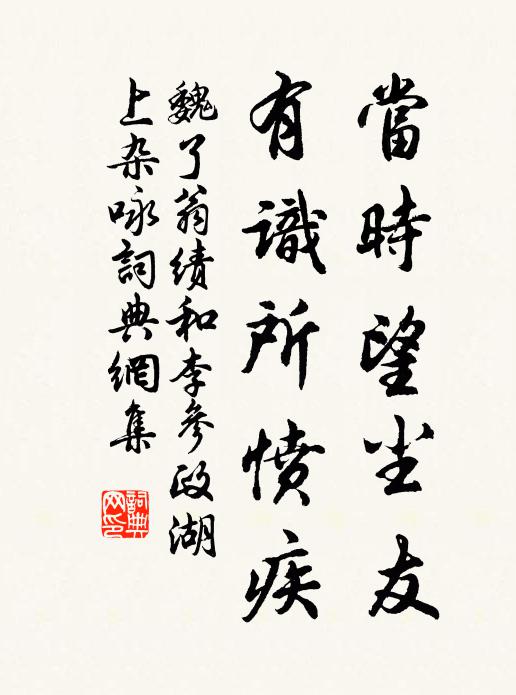 當時望尘友
有識所憤疾
魏了翁績和李參政湖
上杂咏詞典網集
詞典
网印